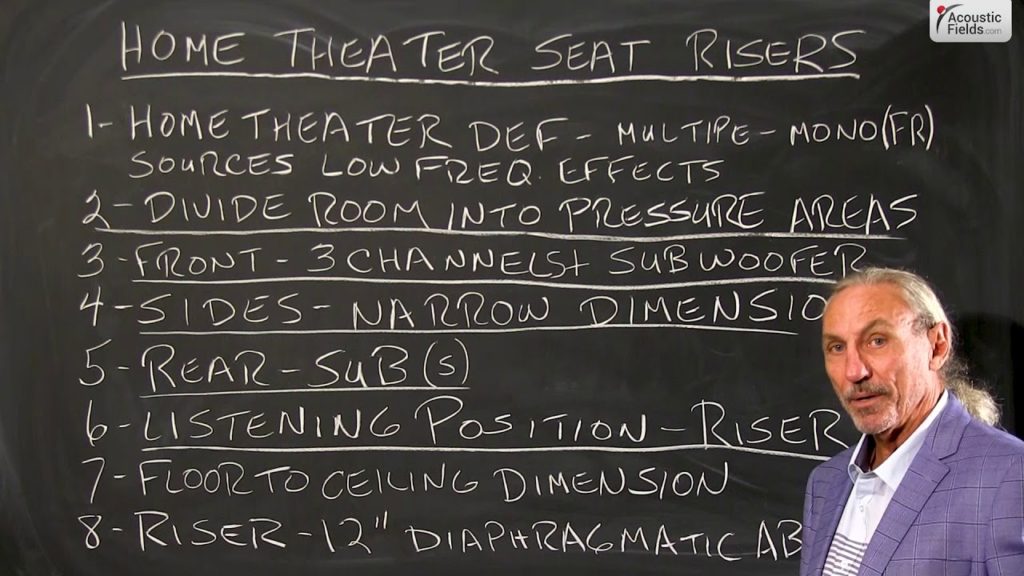 Acoustic
Fields.com
HOME THEATER SEAT RISERS
1- HOME THEATER DEF - MULTIPE - MONO(FR)
SOURCES LOW FREQ. EFFECTS
2- DIVIDE ROOM INTO PRESSURE AREAS
3- FRONT - 3 CHANNELS+ SUBWOOFER
4- SIDES - NARROW DIMENSIO
5- REAR - SUB(S)
6- LISTENING POSITION - RISER
7- FLOOR TO CEILING DIMENSION
8- RISER - 12" DIAPHRAGMATIC AB